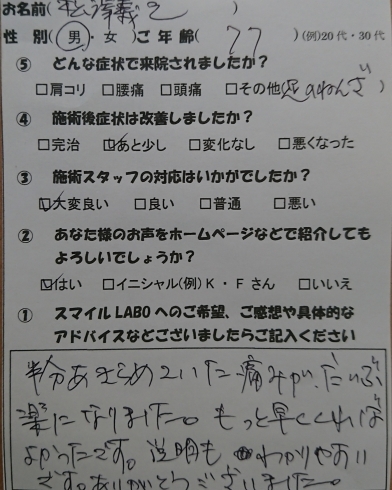 お名前( 松澤義之 )
性 別(男・女 )ご 年 齢( 77 )(例)20代・30代
⑤ どんな症状で来院されましたか?
□肩コリ □腰痛 □頭痛 □その他(足のねんざ)
④ 施術後症状は改善しましたか?
□完治 ☑あと少し □変化なし □悪くなった
③ 施術スタッフの対応はいかがでしたか?
☑大変良い □良い □普通 □悪い
② あなた様のお声をホームページなどで紹介しても
よろしいでしょうか?
☑はい □イニシャル(例)K・Fさん □いいえ
① スマイルLABOへのご希望、ご感想や具体的な
アドバイスなどございましたらご記入ください
半分あきらめていた痛みが、だいぶ
楽になりました。もっと早くくれば
よかったです。説明も わかりやすい
です。ありがとうございました。